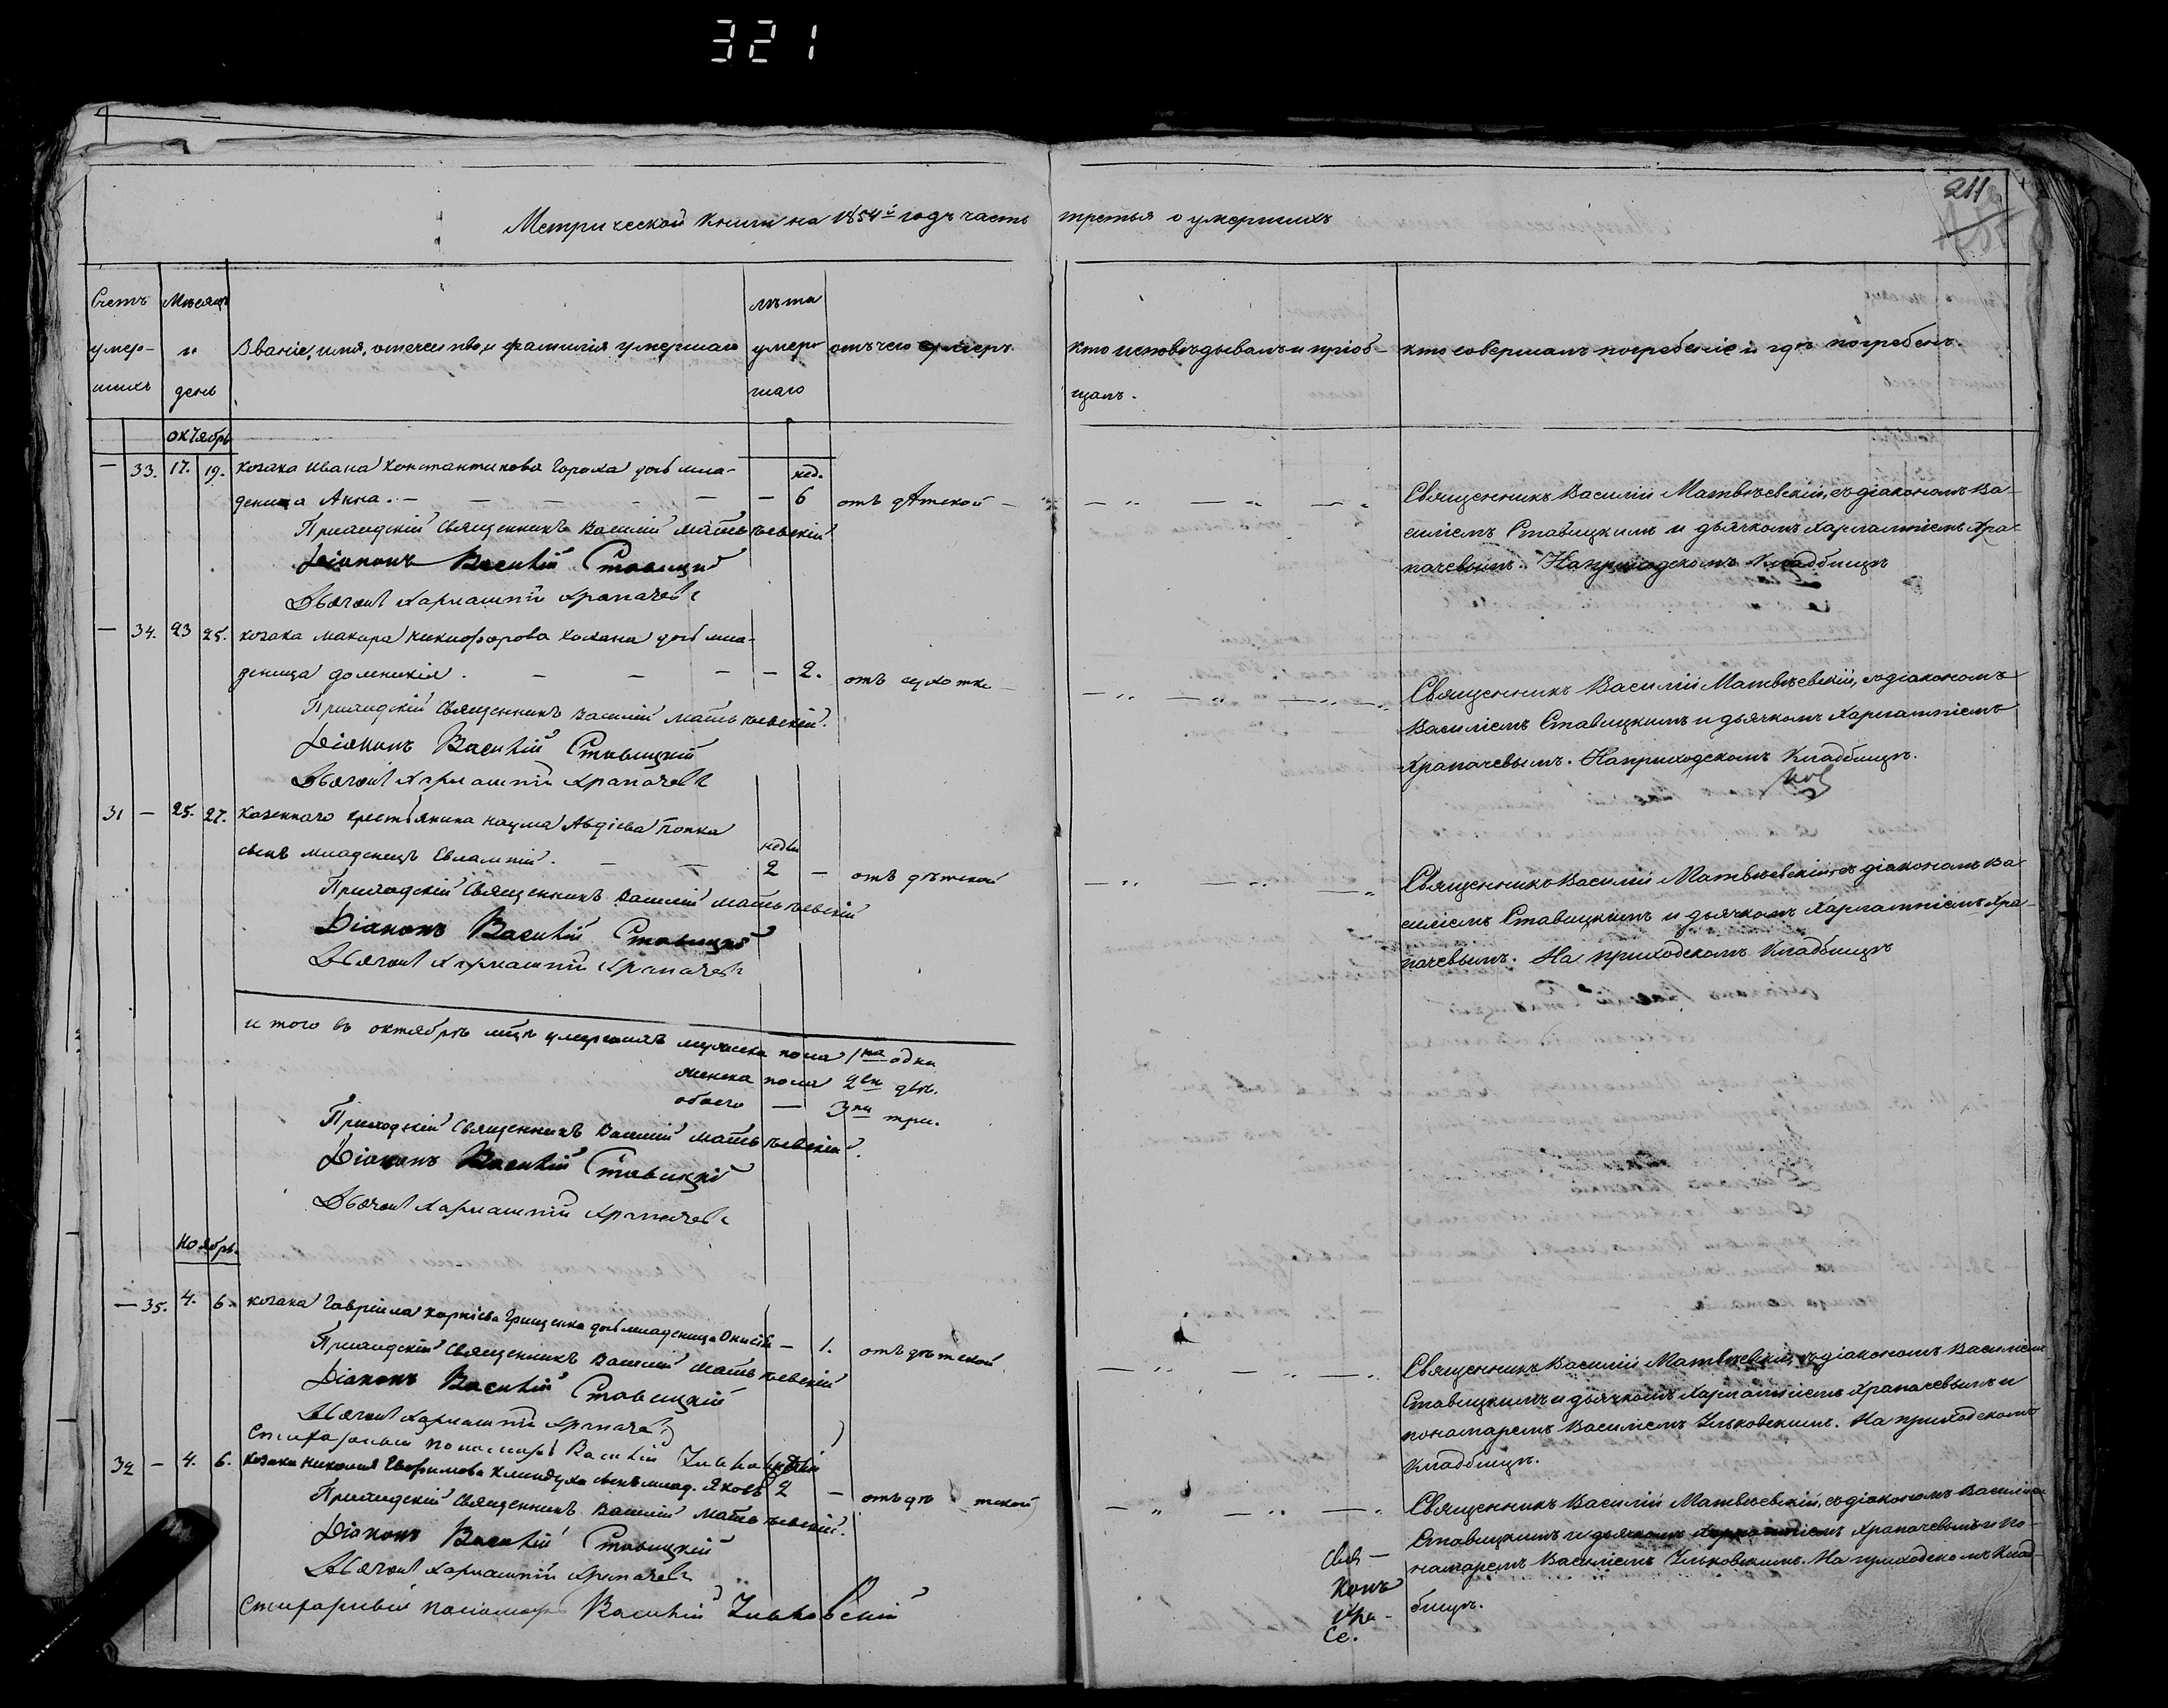 321
211
Метрической книги на 1854й годъ часть третья о умершихъ
Счетъ умер-шихъ
Мѣсяцъ и день
Званіе, имя, отечество, и фамилія умершаго
лѣта умер-шаго
отъ чего умеръ
кто исповѣдывалъ и пріоб-
щалъ.
кто совершалъ погребеніе и гдѣ погребенъ.
октябрь
— 33. 17. 19. козака Ивана Константинова Гороха дочь мла-
нед.
деница Анна. — — — — — — 6 отъ дѣтской —
Приходскій Священникъ Василій Матвѣевскій
Діаконъ Василій Ставицкій
Дьячокъ Харлампій Храпачевъ
Священникъ Василій Матвѣевскій, съ діакономъ Ва-
силіемъ Ставицкимъ и дьячкомъ Харлампіемъ Хра-
пачевымъ. На приходскомъ кладбищѣ
— 34. 23 25. козака Макара Никифорова дочь мла-
деница Домникія. — — — — 2. отъ сухотки —
Приходскій Священникъ Василій Матвѣевскій.
Діаконъ Василій Ставицкій
Дьячокъ Харлампій Храпачевъ
Священникъ Василій Матвѣевскій, съ діакономъ
Василіемъ Ставицкимъ и дьячкомъ Харлампіемъ
Храпачевымъ. На приходскомъ кладбищѣ.
31 — 25. 27. Казеннаго крестьянина Наума Авдіева Попка
сынъ младенецъ Евлампій. — — 2 — отъ дѣтской
Приходскій Священникъ Василій Матвѣевскій
Діаконъ Василій Ставицкій
Дьячокъ Харлампій Храпачевъ
Священникъ Василій Матвѣевскій, съ діакономъ Ва-
силіемъ Ставицкимъ и дьячкомъ Харлампіемъ Хра-
пачевымъ. На приходскомъ кладбищѣ
итого въ октябрѣ мцѣ умершихъ мужеска пола 1на одна
женска пола 2ѣ двѣ.
обоего — 3ри три.
Приходскій Священникъ Василій Матвѣевскій.
Діаконъ Василій Ставицкій
Дьячокъ Харлампій Храпачевъ
ноябрь.
— 35. 4. 6. козака Гавріила Карпіева Грищенка дочь младеница Онисія — 1. отъ дѣтской
Приходскій Священникъ Василій Матвѣевскій
Діаконъ Василій Ставицкій
Дьячокъ Харлампій Храпачевъ
Стихарный пономарь Василій Ильковскій
Священникъ Василій Матвѣевскій, съ діакономъ Василіемъ
Ставицкимъ и дьячкомъ Харлампіемъ Храпачевымъ и
понамаремъ Василіемъ Ильковскимъ. На приходскомъ
кладбищѣ.
32 — 4. 6. козака Николая Ефимова сынъ млад. Яковъ 2 — отъ дѣтской
Приходскій Священникъ Василій Матвѣевскій.
Діаконъ Василій Ставицкій
Дьячокъ Харлампій Храпачевъ
Стихарный пономарь Василій Ильковскій
Священникъ Василій Матвѣевскій, съ діакономъ Василіемъ
Ставицкимъ и дьячкомъ Харлампіемъ Храпачевымъ и по-
намаремъ Василіемъ Ильковскимъ. На приходскомъ клад-
бищѣ.